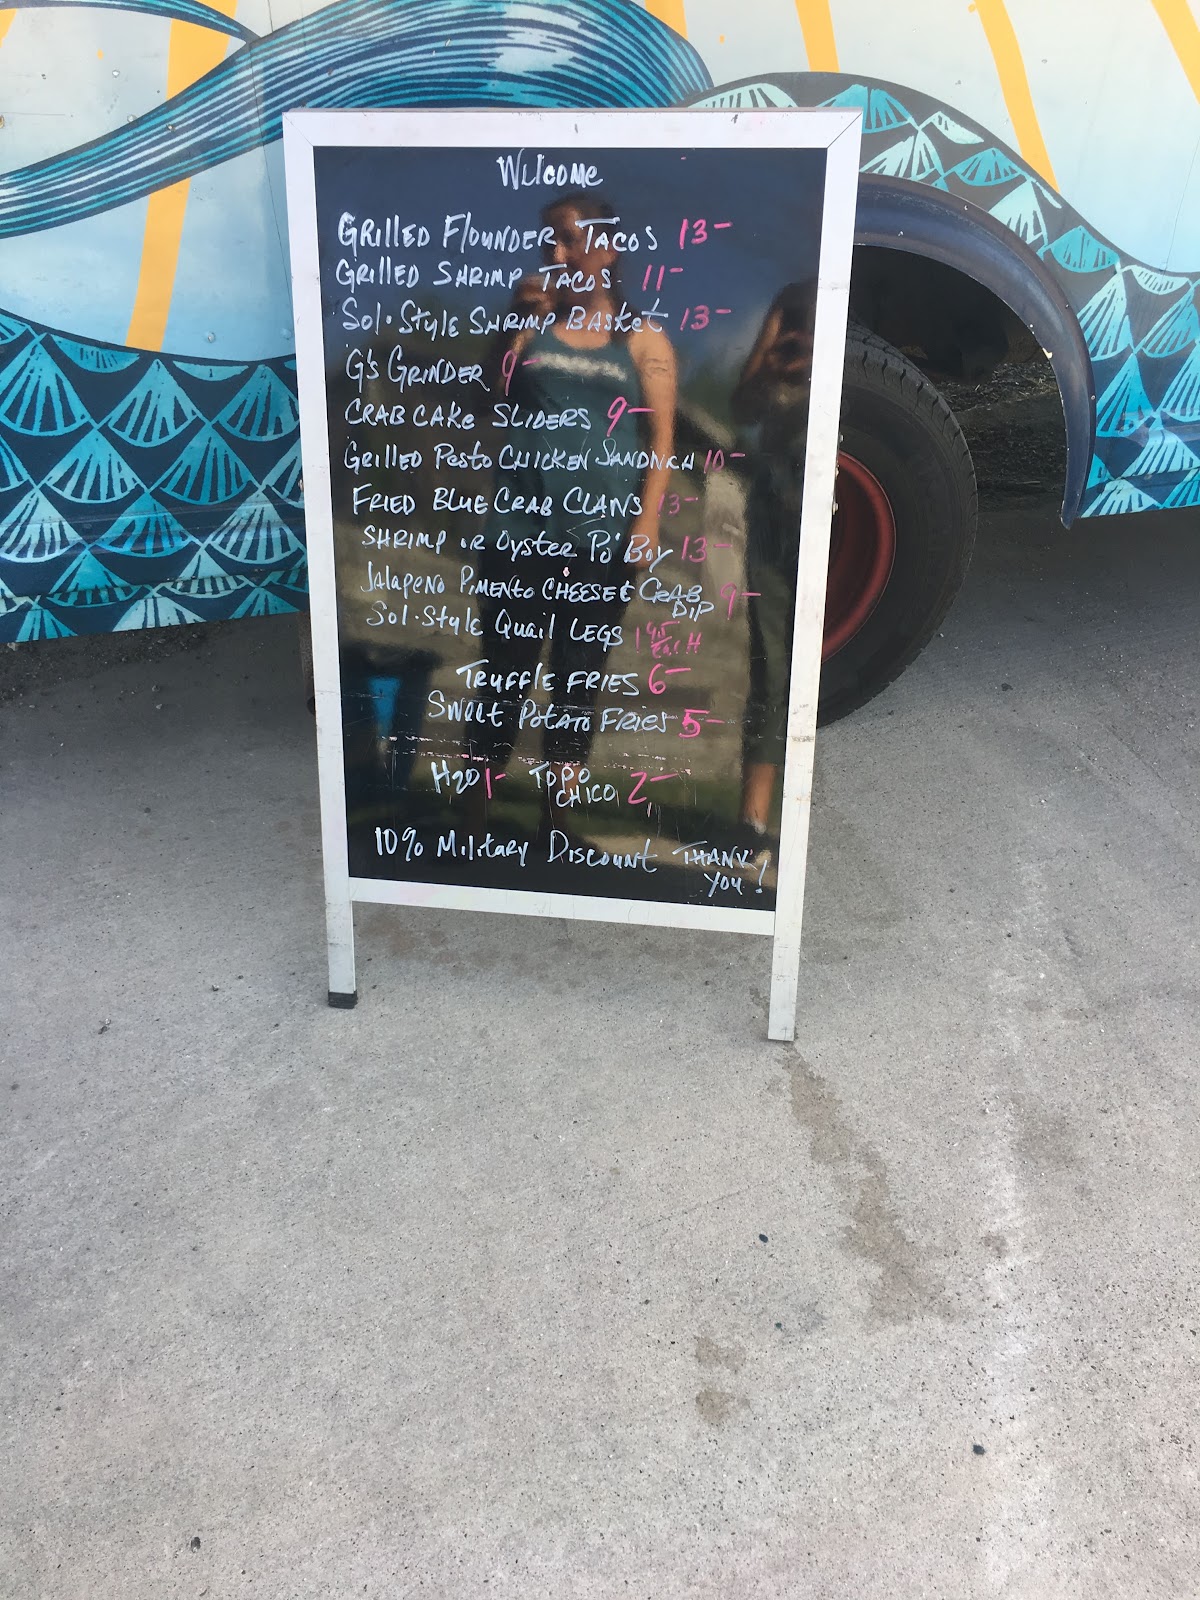 Welcome
Grilled Flounder Tacos 13-
Grilled Shrimp Tacos 11-
Sol-Style Shrimp Basket 13-
G's Grinder 9-
Crab Cake Sliders 9-
Grilled Pesto Chicken Sandwich 10-
Fried Blue Crab Claws 13-
Shrimp or Oyster Po' Boy 13-
Jalapeno Pimento Cheese & Crab Dip 9-
Sol-Style Quail Legs 1.95 Each
Truffle Fries 6-
Sweet Potato Fries 5-
H2O 1- Topo Chico 2-
10% Military Discount Thank You!